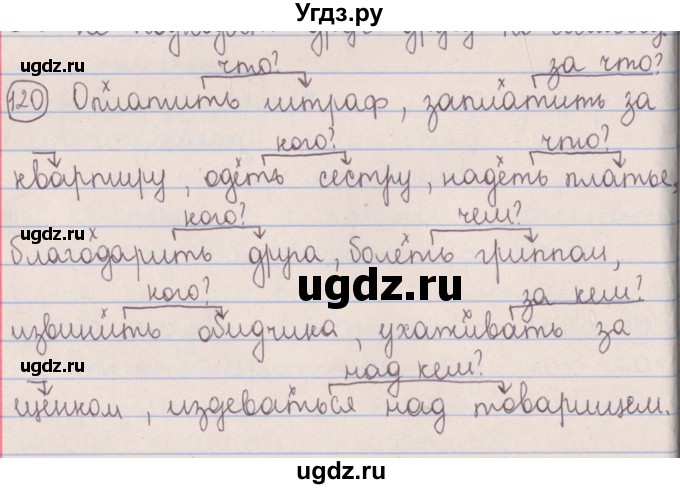 Угдз.ру
друг другу по
ugdz.ru что? ugdz.ru за что?
120 Оплатить штраф, заплатить за
кого? что?
квартиру, одеть сестру, надеть платье,
ugdz.ru кого? чем?
благодарить друга, болеть гриппом,
ugdz.ru
кого? за кем?
извинить обидчика, ухаживать за
ugdz.ru над кем? ugdz.ru
щенком, издеваться над товарищем.
ugdz.ru